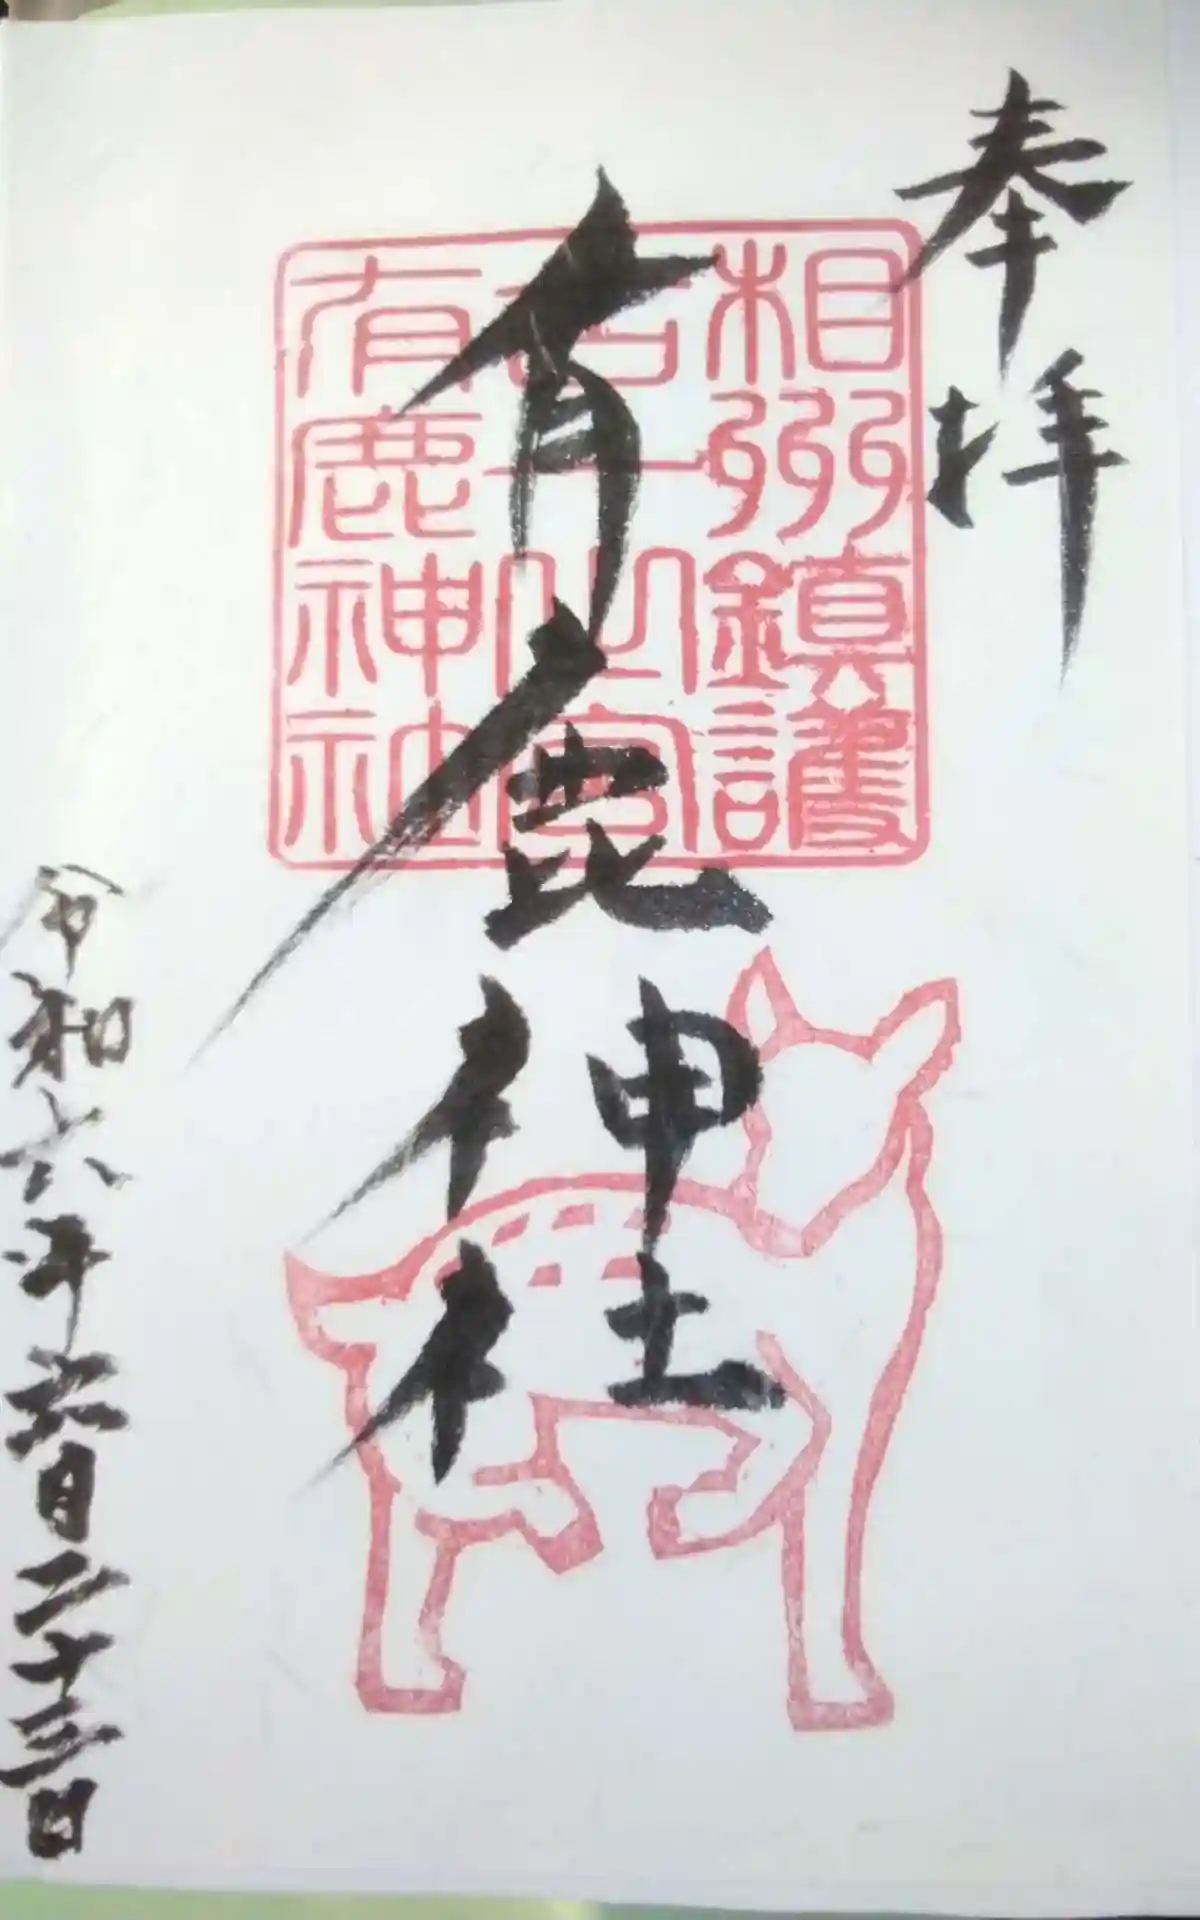 奉拝
相州鎮護
五十之宮
有鹿神社
有鹿神社
令和六年六月二十三日